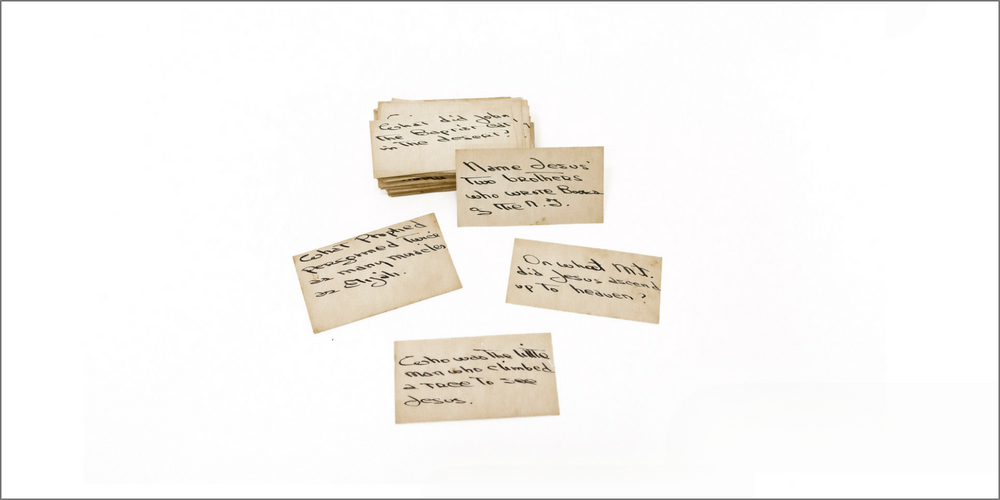 What did John
the Baptist eat
in the desert?
Name Jesus'
Two brothers
who wrote Books
of the N.T.
What Prophed
performed twice
as many miracles
as Elijah.
On what Mt.
did Jesus ascend
up to heaven?
Who was the little
man who climbed
a tree to see
Jesus.